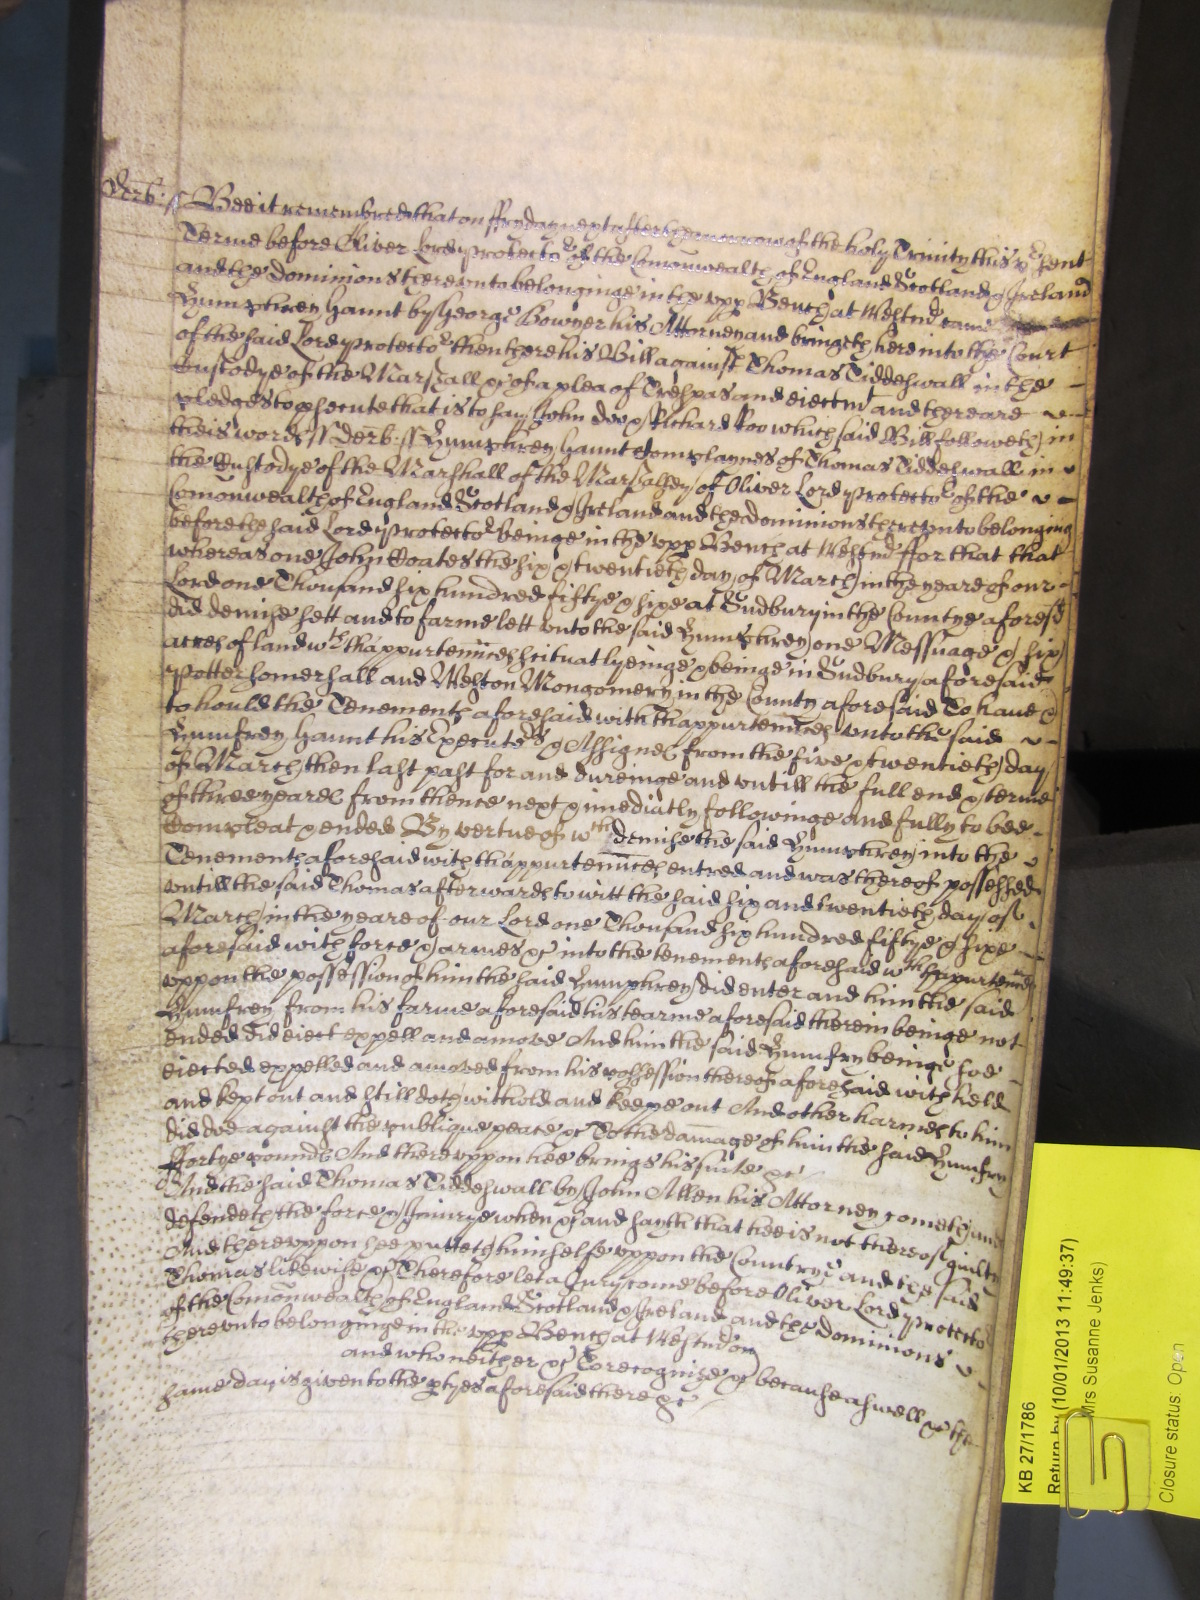 Derb: ss Bee it remembred that on ffryday next after the morrow of the holy Trinity this p̱sent
Terme before Oliver Lord protector of the Comonwealth of England Scotland & Ireland
and the dominions therevnto belonginge in the vpp Bench at Westmr came
Humphrey Haunt by George Bowyer his Attorney and bringeth here into the Court
of the said Lord protector then there his Bill against Thomas Tiddeswall in the
Custodye of the Marshall &c of a plea of Trespas and eiectmt and there are
pledges to p̱secute that is to say John doo & Richard Roo which said Bill followeth in
theis words ss Derb: ss Humphrey Haunt Complaynes of Thomas Tiddeswall in
the Custodye of the Marshall of the Marshalsey of Oliver Lord protector of the
Comonwealth of England Scotland & Ireland and the dominions therevnto belonging
before the said Lord protector beinge in the vpp Bench at Westmr ffor that that
whereas one John Coates the six & twentieth day of March in the yeare of our
Lord one Thousand six hundred fiftye & sixe at Sudbury in the Countye aforesd
did demise sett and to farme lett vnto the said Humphrey one Messuage & six
acres of land wth thappurtennces scituat lyeinge & beinge in Sudbury aforesaid
Potter Somersall and Weston Mongomery in the County aforesaid To have &
to hould the Tenements aforesaid with thappurtenncs vnto the said
Humfrey Haunt his Executors & Assignes from the five & twentieth day
of March then last past for and dureinge and vntill the full end & terme
of three yeares from thence next & imediatly followinge and fully to bee
Compleat & ended By vertue of wch demise the said Humphrey into the
Tenements aforesaid with thappurtenncs entred and was thereof possessed
vntill the said Thomas afterwards to witt the said six and twentieth day of
March in the yeare of our Lord one Thousand six hundred fiftye & sixe
aforesaid with force & armes &c into the tenements aforesaid wth thappurtennces
vppon the possession of him the said Humphrey did enter and him the said
Humfrey from his farme aforesaid his tearme aforesaid therein beinge not
ended did eiect expell and amove And him the said Humfry beinge soe
eiected expelled and amoved from his possession thereof aforesaid with held
and kept out and still doth withold and keepe out And other harmes to him
did doe against the publique peace &c To the damage of him the said Humfry
ffortye pounds And therevppon hee brings his suite &c
And the said Thomas Tiddeswall by John Allen his Attorney cometh and
defendeth the force & Iniurye when &c and sayth that hee is not thereof guilty
And therevppon hee putteth himselfe vppon the Countrye and the said
Thomas likewise &c Therefore let a Jury come before Oliver Lord protector
of the Comonwealth of England Scotland & Ireland and the dominions
therevnto belonginge in the vpp Bench at Westmr on
and who neither &c To recognize &c because aswell &c the
same day is given to the p̱tyes aforesaid there &c
KB 27/1786
Return by (10/01/2013 11:49:37)
Mrs Susanne Jenks)
Closure status: Open